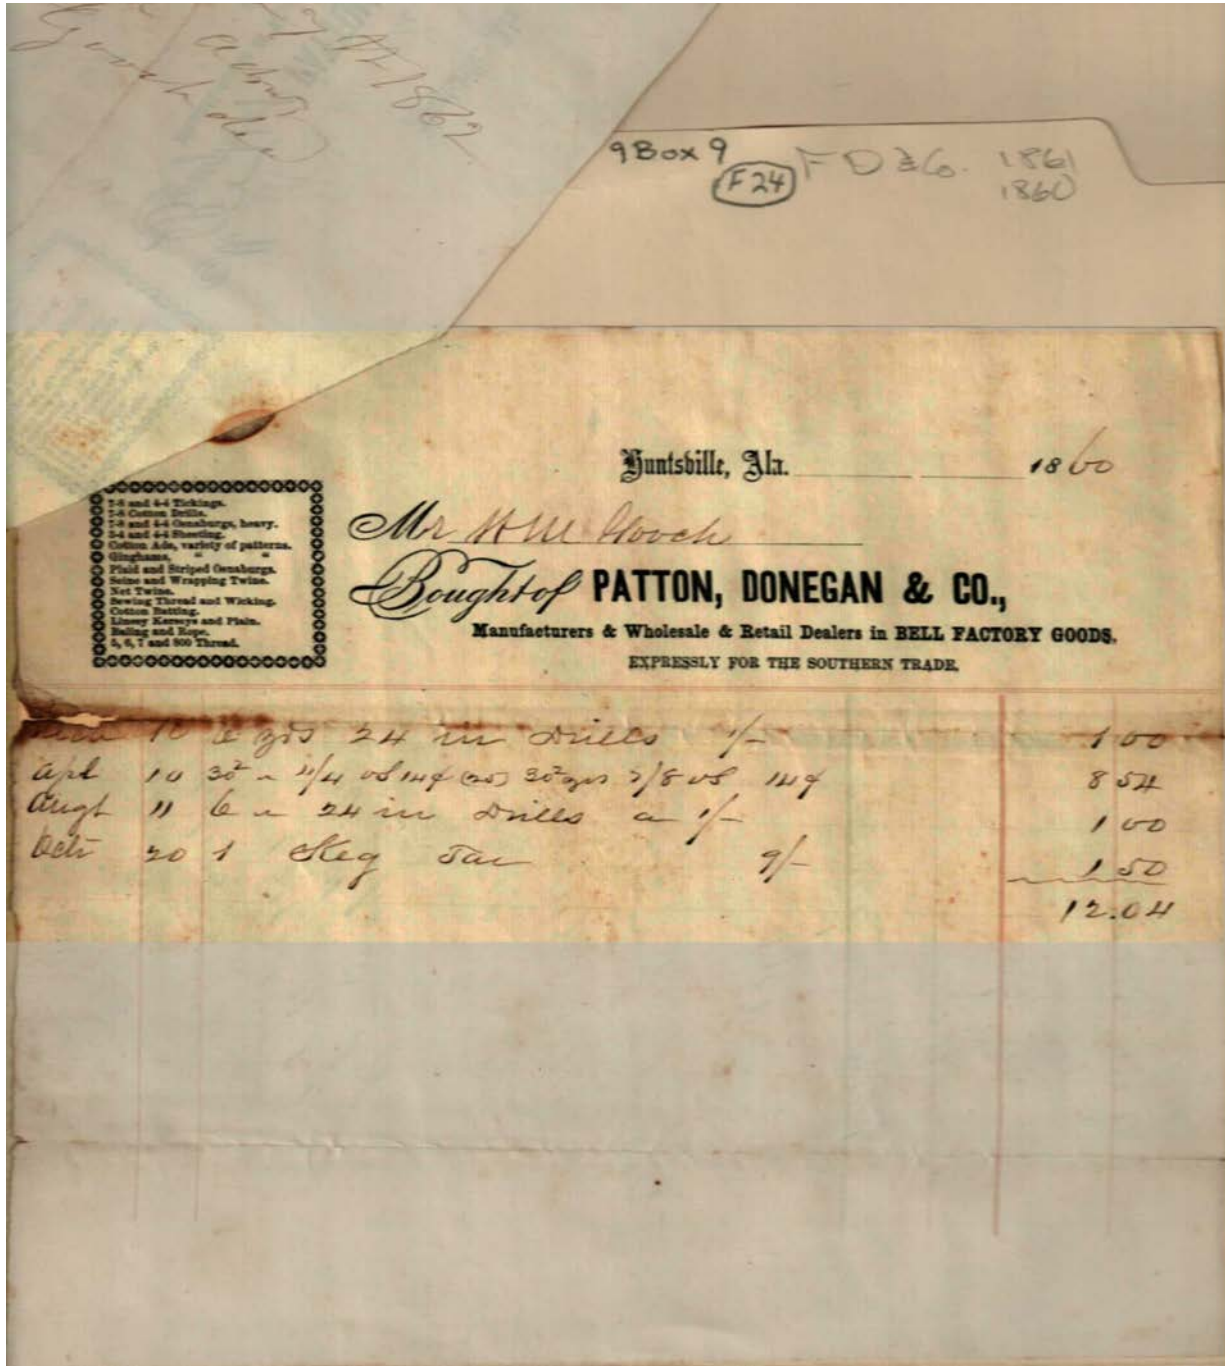 1862
9 Box 9
F 24 F D & Co. 1861
1860
Huntsville, Ala. 1860
7-8 and 4-4 Tickings.
7-8 Cotton Drills.
7-8 and 4-4 Osnaburgs, heavy.
3-4 and 4-4 Sheeting.
Cotton Ade, variety of patterns.
Ginghams, " "
Plaid and Striped Osnaburgs.
Seine and Wrapping Twine.
Net Twine.
Sewing Thread and Wicking.
Cotton Batting.
Linsey Kerseys and Plain.
Baling and Rope.
5, 6, 7 and 800 Thread.
Mr H M Gooch
Bought of PATTON, DONEGAN & CO.,
Manufacturers & Wholesale & Retail Dealers in BELL FACTORY GOODS.
EXPRESSLY FOR THE SOUTHERN TRADE.
10 6 yds 24 in Drills 1/- 1 00
Apl 10 30² " 4/4 os 14¢ 30² yds 7/8 os 14¢ 8 54
Augt 11 6 " 24 in Drills a 1/- 1 00
Oct 20 1 Keg Tar 9/- 1 50
12.04